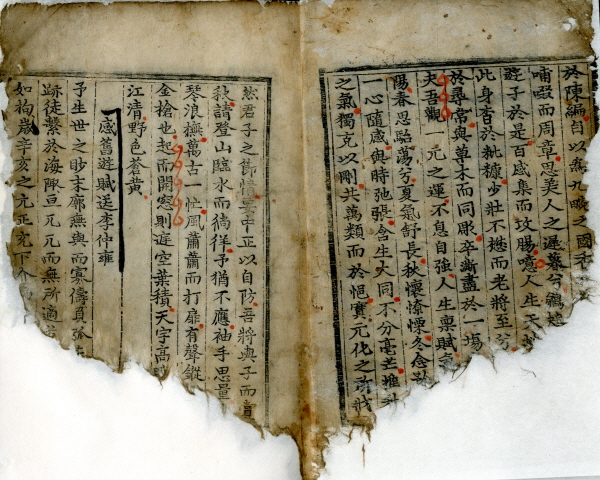 於陳編自以為九畹之國香
哺啜而周章思美人之遲暮兮鶴
遊子於是百感集而攻腸噫人生天
此身杳於粃糠少壯不樾而老將至兮
於尋常與草木而同彫卒澌盡於一場
夫吾觀一元之運不息自強人生稟賦
陽春思駘蕩兮夏氣舒長秋懷憭慄冬
一心隨感與時弛張含生大同不分毫芒
之氣獨克以剛共萬類而於悒實元化之
然君子之節情要中正以自防吾將與子而
秋請登山臨水而徜徉予猶不應袖手思量
琴浪撫萬古一忙風蕭蕭而打扉有聲鏦
金槍也起而開窓則遥空葉積天宇高
江清野色蒼黃
感舊遊賦送李仲雍
予生世之眇末廓無與而寡儔
跡徒繫於海陬亘兀兀而無所適
如拘歲辛亥之元正